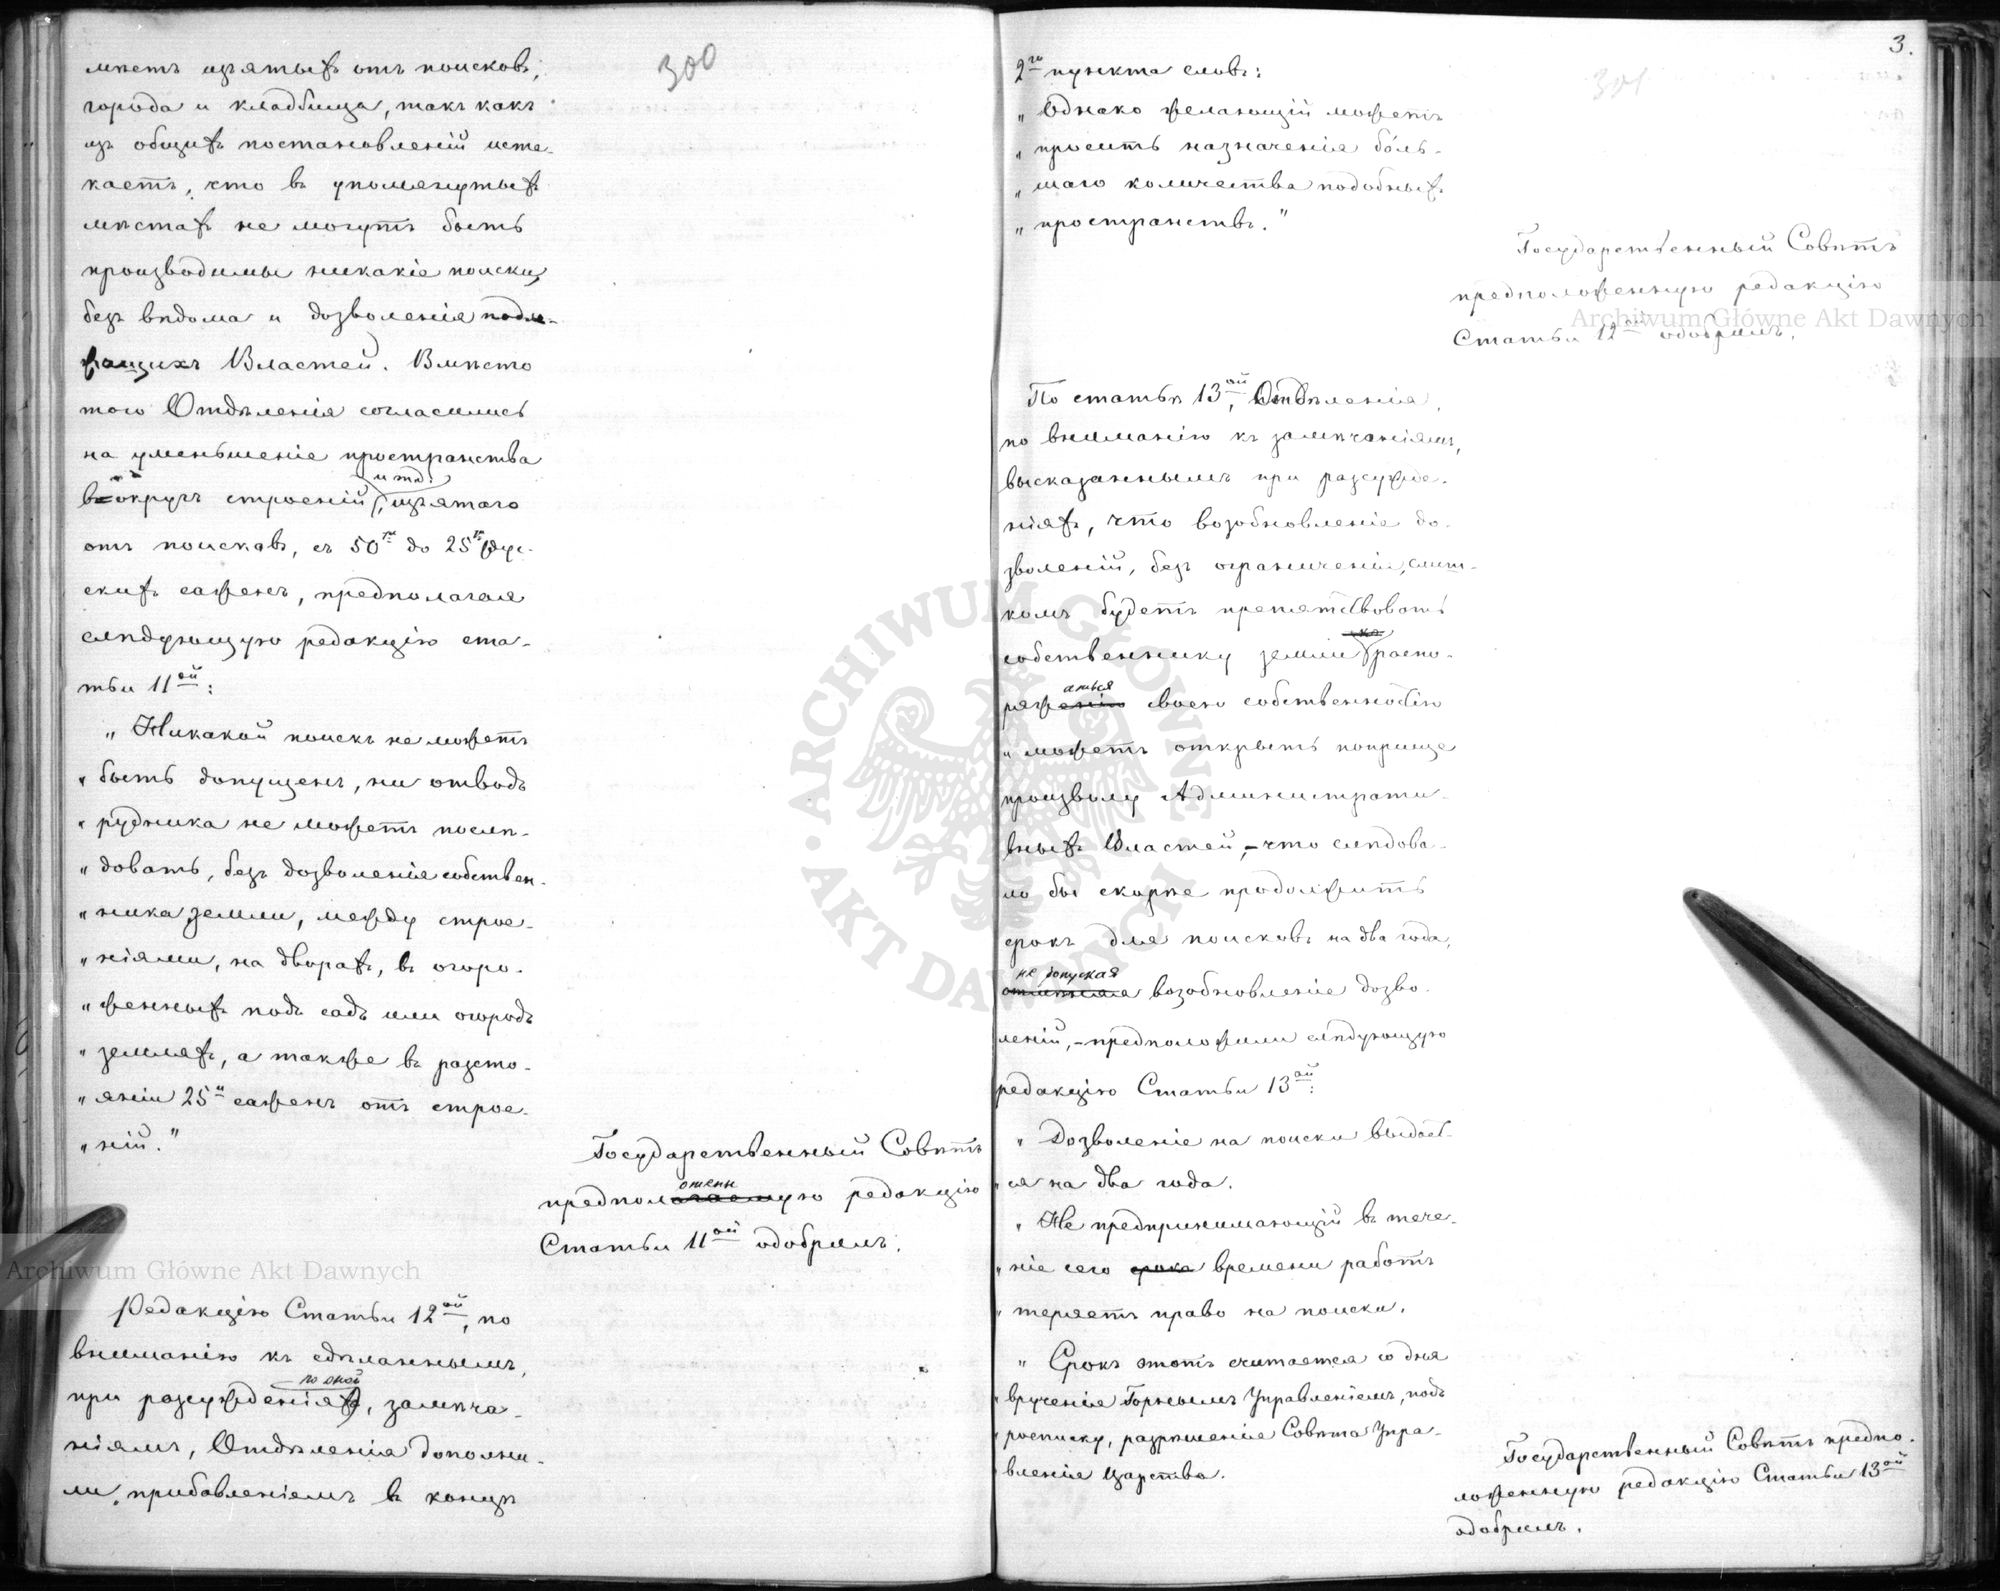 300
мѣстъ изъятыхъ отъ поисковъ,
города и кладбища, такъ какъ
изъ общихъ постановленій исте-
каетъ, что въ упомянутыхъ
мѣстахъ не могутъ быть
производимы никакіе поиски,
безъ вѣдома и дозволенія подле-
жащихъ Властей. Вмѣсто
того Отдѣленія согласились
на уменьшеніе пространства
вокругъ строеній и тд., изъятаго
отъ поисковъ, съ 50ти до 25ти рус-
скихъ саженъ, предполагая
слѣдующую редакцію ста-
тьи 11ой:
„Никакой поискъ не можетъ
„быть допущенъ, ни отводъ
„рудника не можетъ послѣ-
„довать, безъ дозволенія собствен-
„ника земли, между строе-
„ніями, на дворахъ, въ огоро-
„женныхъ подъ садъ или огородъ
„земляхъ, а также въ разсто-
„яніи 25и саженъ отъ строе-
„ній."
Государственный Совѣтъ
предположенную редакцію
Статьи 11ой одобрилъ.
Редакцію Статьи 12ой, по
вниманію къ сдѣланнымъ,
при разсужденіяхъ по оной, замѣча-
ніямъ, Отдѣленія дополни-
ли, прибавленіемъ въ концѣ
3.
301
2го пункта словъ:
„Однако желающій можетъ
„просить назначенія боль-
„шаго количества подобныхъ
„пространствъ."
Государственный Совѣтъ
предположенную редакцію
Статьи 12ой одобрилъ.
По статьѣ 13ой, Отдѣленія,
по вниманію къ замѣчаніямъ,
высказаннымъ при разсужде-
ніяхъ, что возобновленіе до-
зволеній, безъ ограниченія, слиш-
комъ будетъ препятствовать
собственнику земли распо-
ряжаться своею собственностію
и можетъ открыть поприще
произволу Администрати-
вныхъ Властей, – что слѣдова-
ло бы скорѣе продолжить
срокъ для поисковъ на два года,
не допуская возобновленіе дозво-
леній, – предположили слѣдующую
редакцію Статьи 13ой:
„Дозволеніе на поиски выдает-
„ся на два года.
„Не предпринимающій въ тече-
„ніе сего срока времени работъ
„теряетъ право на поиски.
„Срокъ этотъ считается со дня
„врученія Горнымъ Управленіемъ, подъ
„росписку, разрѣшенія Совѣта Упра-
вленія Царства.
Государственный Совѣтъ предпо-
ложенную редакцію Статьи 13ой
одобрилъ.
ARCHIWUM GŁÓWNE AKT DAWNYCH
Archiwum Główne Akt Dawnych
Archiwum Główne Akt Dawnych